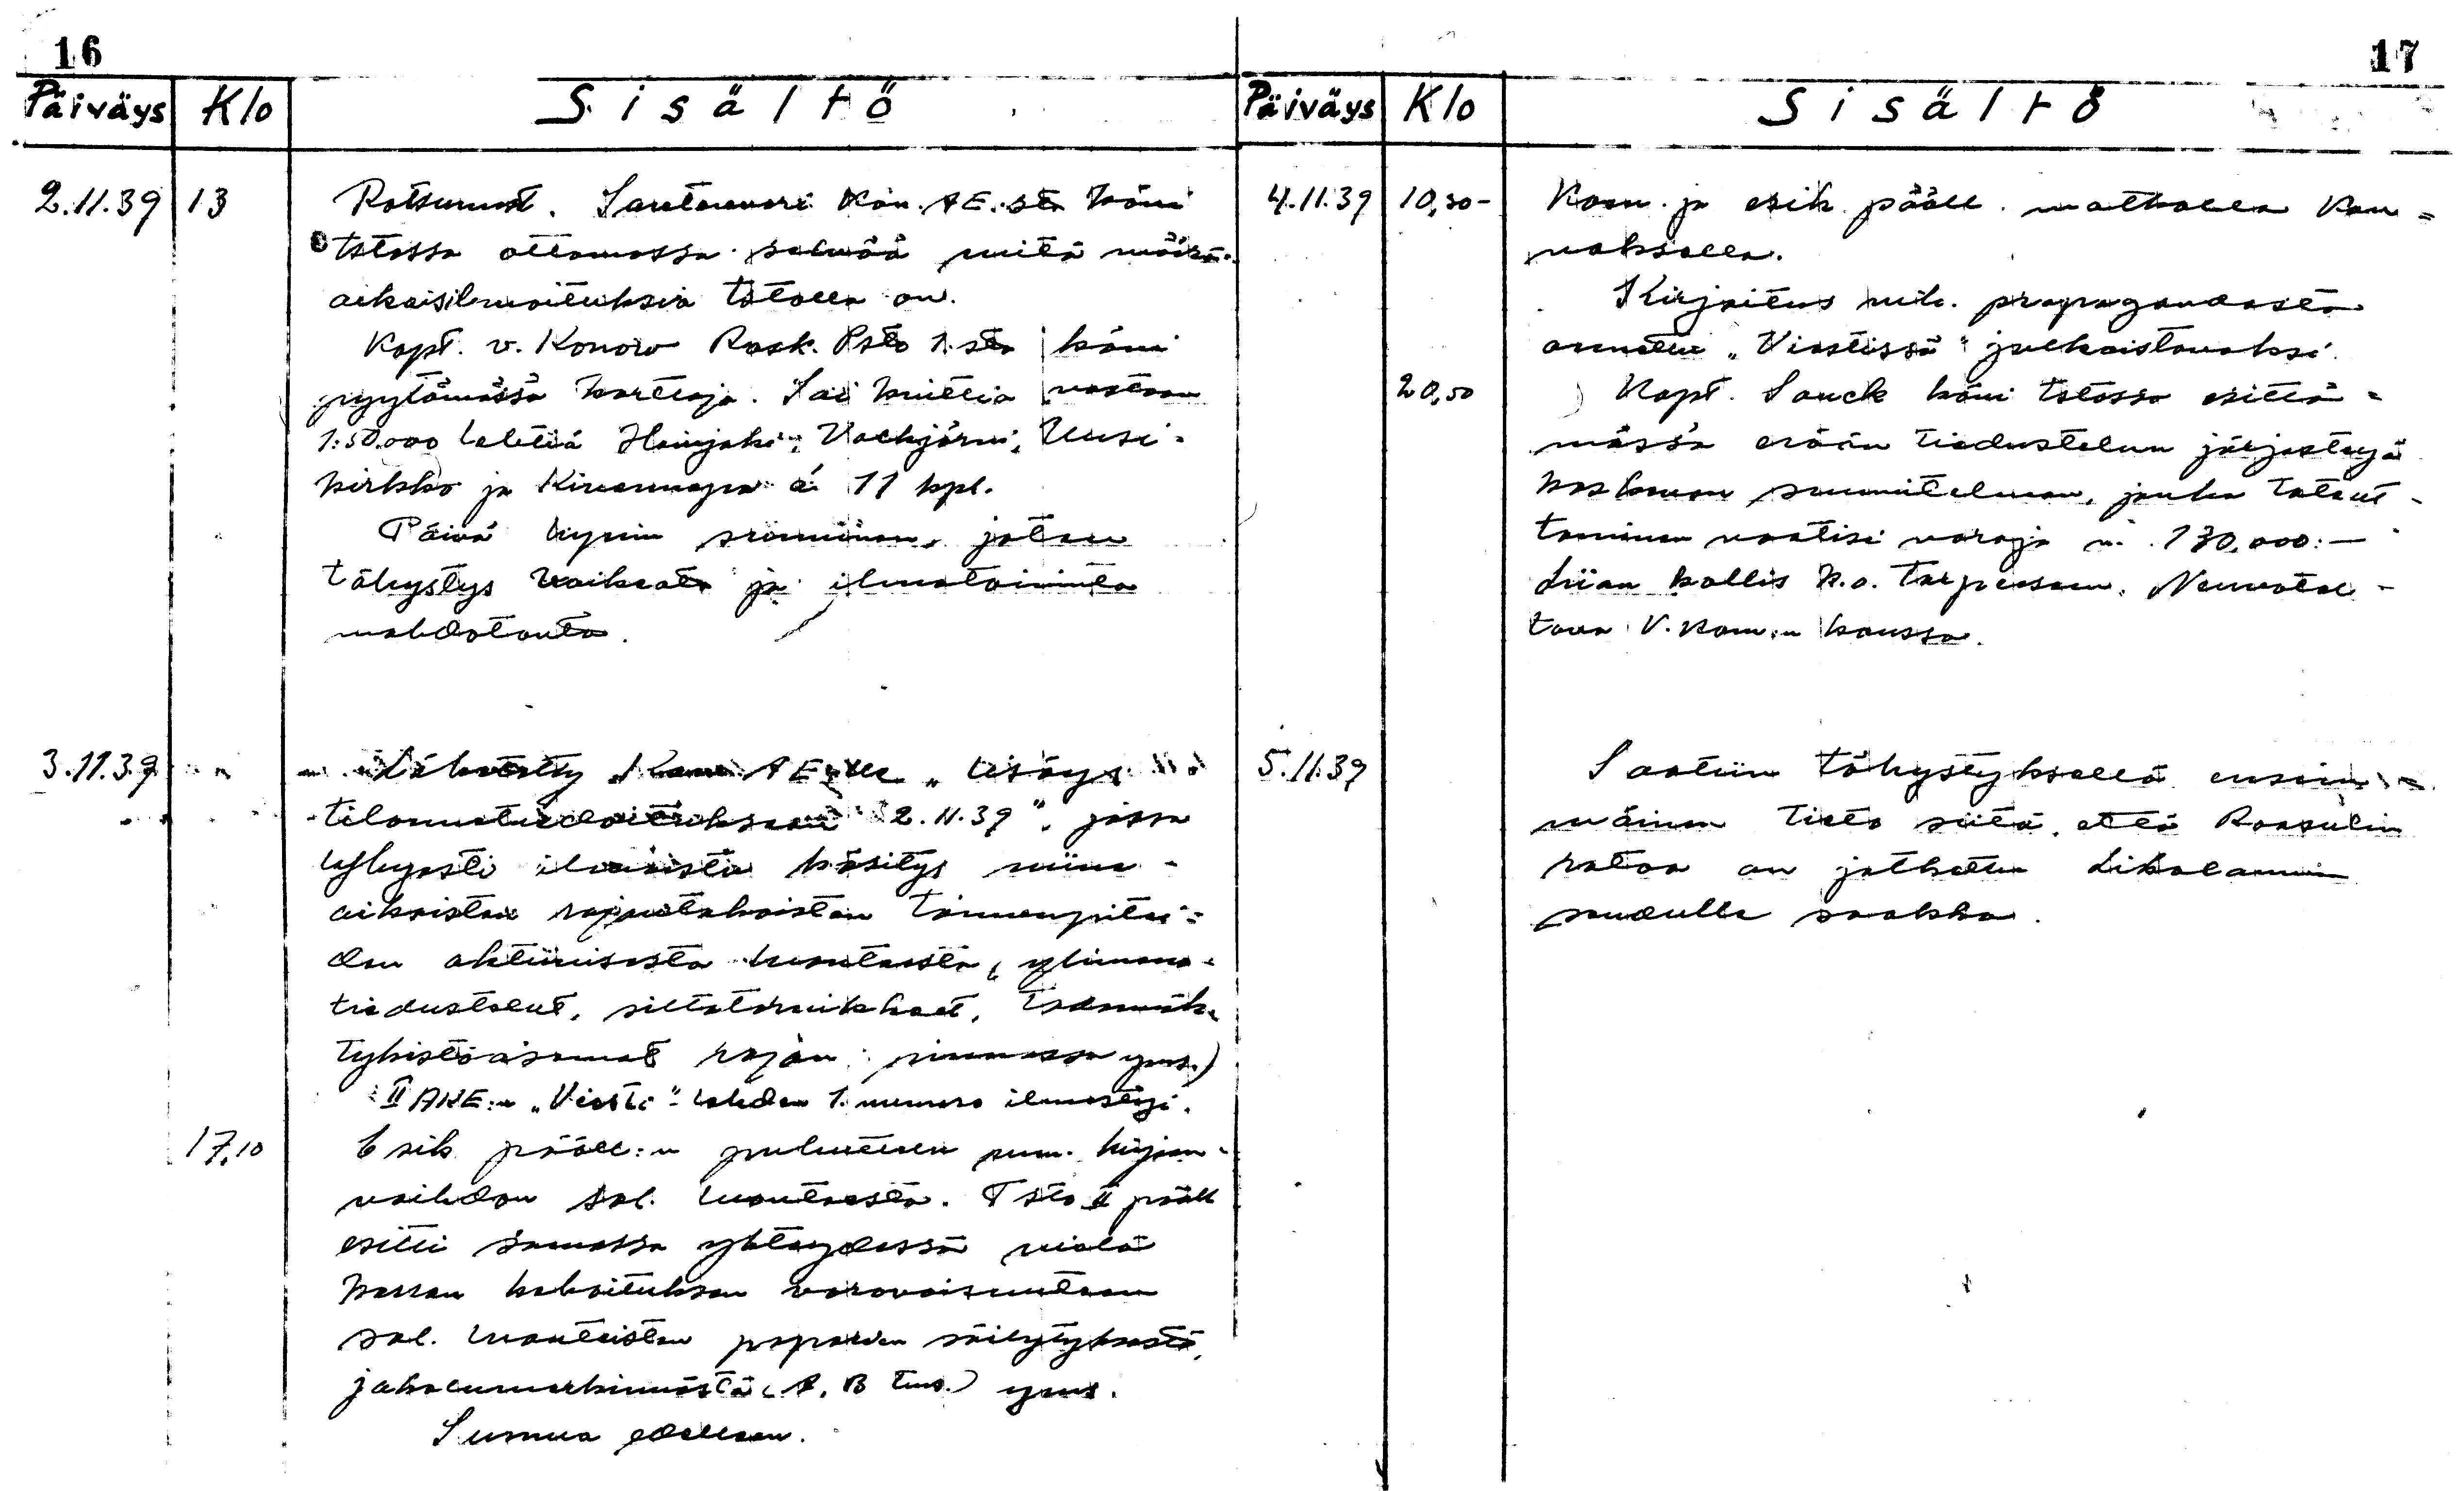 16
Päiväys Klo Sisältö
2.11.39 13 Ratsumest. Santavuori Kan. AE.sta kävi
tstossa ottamassa selvää mitä määrä-
aikaisilmoituksia tstolla on.
Kapt. v. Konow Rask. Psto 1.sta kävi
pyytämässä karttoja. Sai kuittia vastaan
1:50.000 lehtiä Heinjoki, Valkjärvi, Uusi-
kirkko ja Kivennapa á 11 kpl.
Päivä hyvin sumuinen, joten
tähystys vaikeata ja ilmatoiminta
mahdotonta.
3.11.39 Lähetetty Kan. AE:lle „Lisäys
tilannetiedoitukseen 2.11.39", jossa
lyhyesti ilmaistu käsitys viime-
aikaisten rajantakaisten toimenpitei-
den aktiivisesta luonteesta, (ylimeno-
tiedustelut, siltatarvikkeet,
tykistöasemat rajan pinnassa yms.)
II AKE:n „Viesti"-lehden 1. numero ilmestyi.
17,10 Esik. pääll:n puhuttelu mm. kirjeen-
vaihdon sal. luonteesta. Tsto II pääll
esitti samassa yhteydessä vielä
kerran kehoituksen varovaisuuteen
sal. luonteisten paperien säilytyksestä,
jakelumerkinnästä (A, B tms.) yms.
Sumua edelleen.
17
Päiväys Klo Sisältö
4.11.39 10,30- Kom. ja esik. pääll. matkalla Kan-
naksella.
Kirjoitus vih. propagandasta
annettu „Viestissä" julkaistavaksi.
20,50 Kapt. Sauck kävi tstossa esittä-
mässä erään tiedustelun järjestelyä
koskevan suunnitelman, jonka toteut-
taminen vaatisi varoja n. 130.000:—
Liian kallis k.o. tarpeeseen. Neuvotel-
tava V. Kom:n kanssa.
5.11.39 Saatiin tähystyksellä ensim-
mäinen tieto siitä, että Raasulin
rataa on jatkettu Likolammin
seudulle saakka.